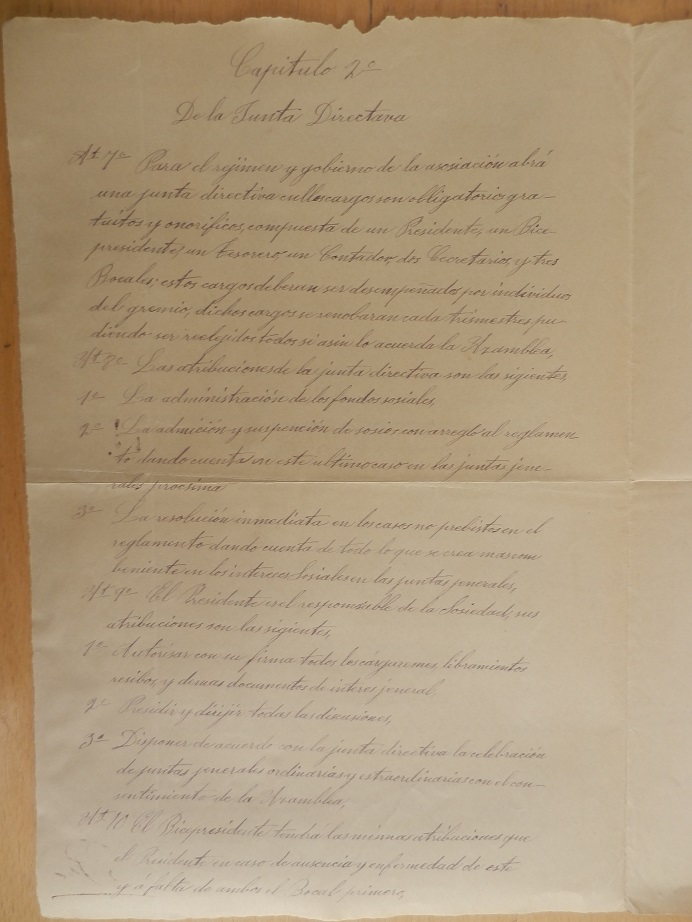 Capitulo 2º
De la Junta Directava
At 7º Para el rejimen y gobierno de la asosiación abrá
una junta directiva cullos cargos son obligatorios gra-
tuitos y onorificos, compuesta de un Presidente, un Bice
presidente, un tesorero un Contador, dos Secretarios, y tres
Bocales; estos cargos deberan ser desempeñados por individuos
del gremio, dichos cargos se renobaran cada trimestre pu-
diendo ser reelejidos todos si asin lo acuerda la Azamblea,
At 8º Las atribuciones de la junta directiva son las sigientes,
1º La administración de los fondos sosiales,
2º La admición y suspención de sosios con arreglo al reglamen
to dando cuenta en este ultimo caso en las juntas jene-
rales procsima
3º La resolución inmediata en los casos no prebistos en el
reglamento dando cuenta de todo lo que se crea mas con
beniente en los intereses Sosiales en las juntas jenerales,
At 9º El Presidente es el responsable de la Sosiedad, sus
atribuciones son las sigientes,
1º Autorisar con su firma todos los libramientos
resibos, y demas documentos de interes jeneral,
2º Presidir y dirijir todas las discusiones,
3º Disponer de acuerdo con la junta directiva la celebración
de juntas jenerales ordinarias y estraordinarias con el con-
sentimiento de la Azamblea,
At 10 El Bicepresidente tendrá las mismas atribuciones que
el Presidente en caso de ausencia y enfermedad de este
y á falta de ambos el Bocal primero,